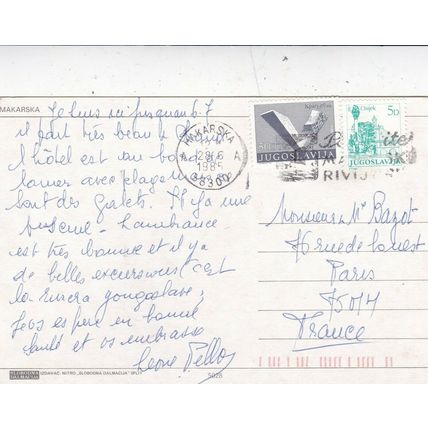 MAKARSKA
Je suis ici jusqu'au 6-7
il fait très beau
l'hôtel est au bord de
la mer avec plage mais
sont des galets. Il y a une
piscine - L'ambiance
est très bonne et il y a
de belles excursions c'est
la riviera yougoslave,
Je vous espère en bonne
santé et vous embrasse
JUGOSLAVIJA
Osijek
5D
JUGOSLAVIJA
MAKARSKA
28 6
1985
58300
RIVIJ
Monsieur & Me Bazot
rue de l'ouest
Paris
75014
France
SLOBODNA
DALMACIJA
IZDAVAČ: NITRO „SLOBODNA DALMACIJA" SPLIT